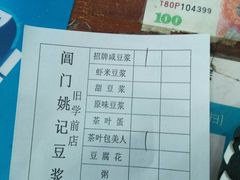 T80P104399
100
阊门姚记豆浆
旧学前店
招牌咸豆浆
虾米豆浆
甜豆浆
原味豆浆
茶叶蛋
茶叶包美人
豆腐花
粥